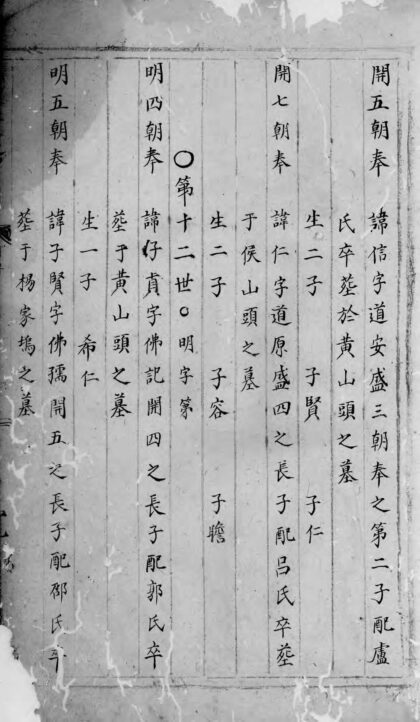 開五朝奉 諱信字道安盛三朝奉之第二子配盧
氏卒塟於黄山頭之墓
生二子 子賢 子仁
開七朝奉 諱仁字道原盛四之長子配吕氏卒塟
于侯山頭之墓
生二子 子容 子瞻
○第十二世○明字第
明四朝奉 諱仔貢字佛記開四之長子配郭氏卒
塟于黄山頭之墓
生一子 希仁
明五朝奉 諱子賢字佛孺開五之長子配邵氏卒
塟于楊家塢之墓